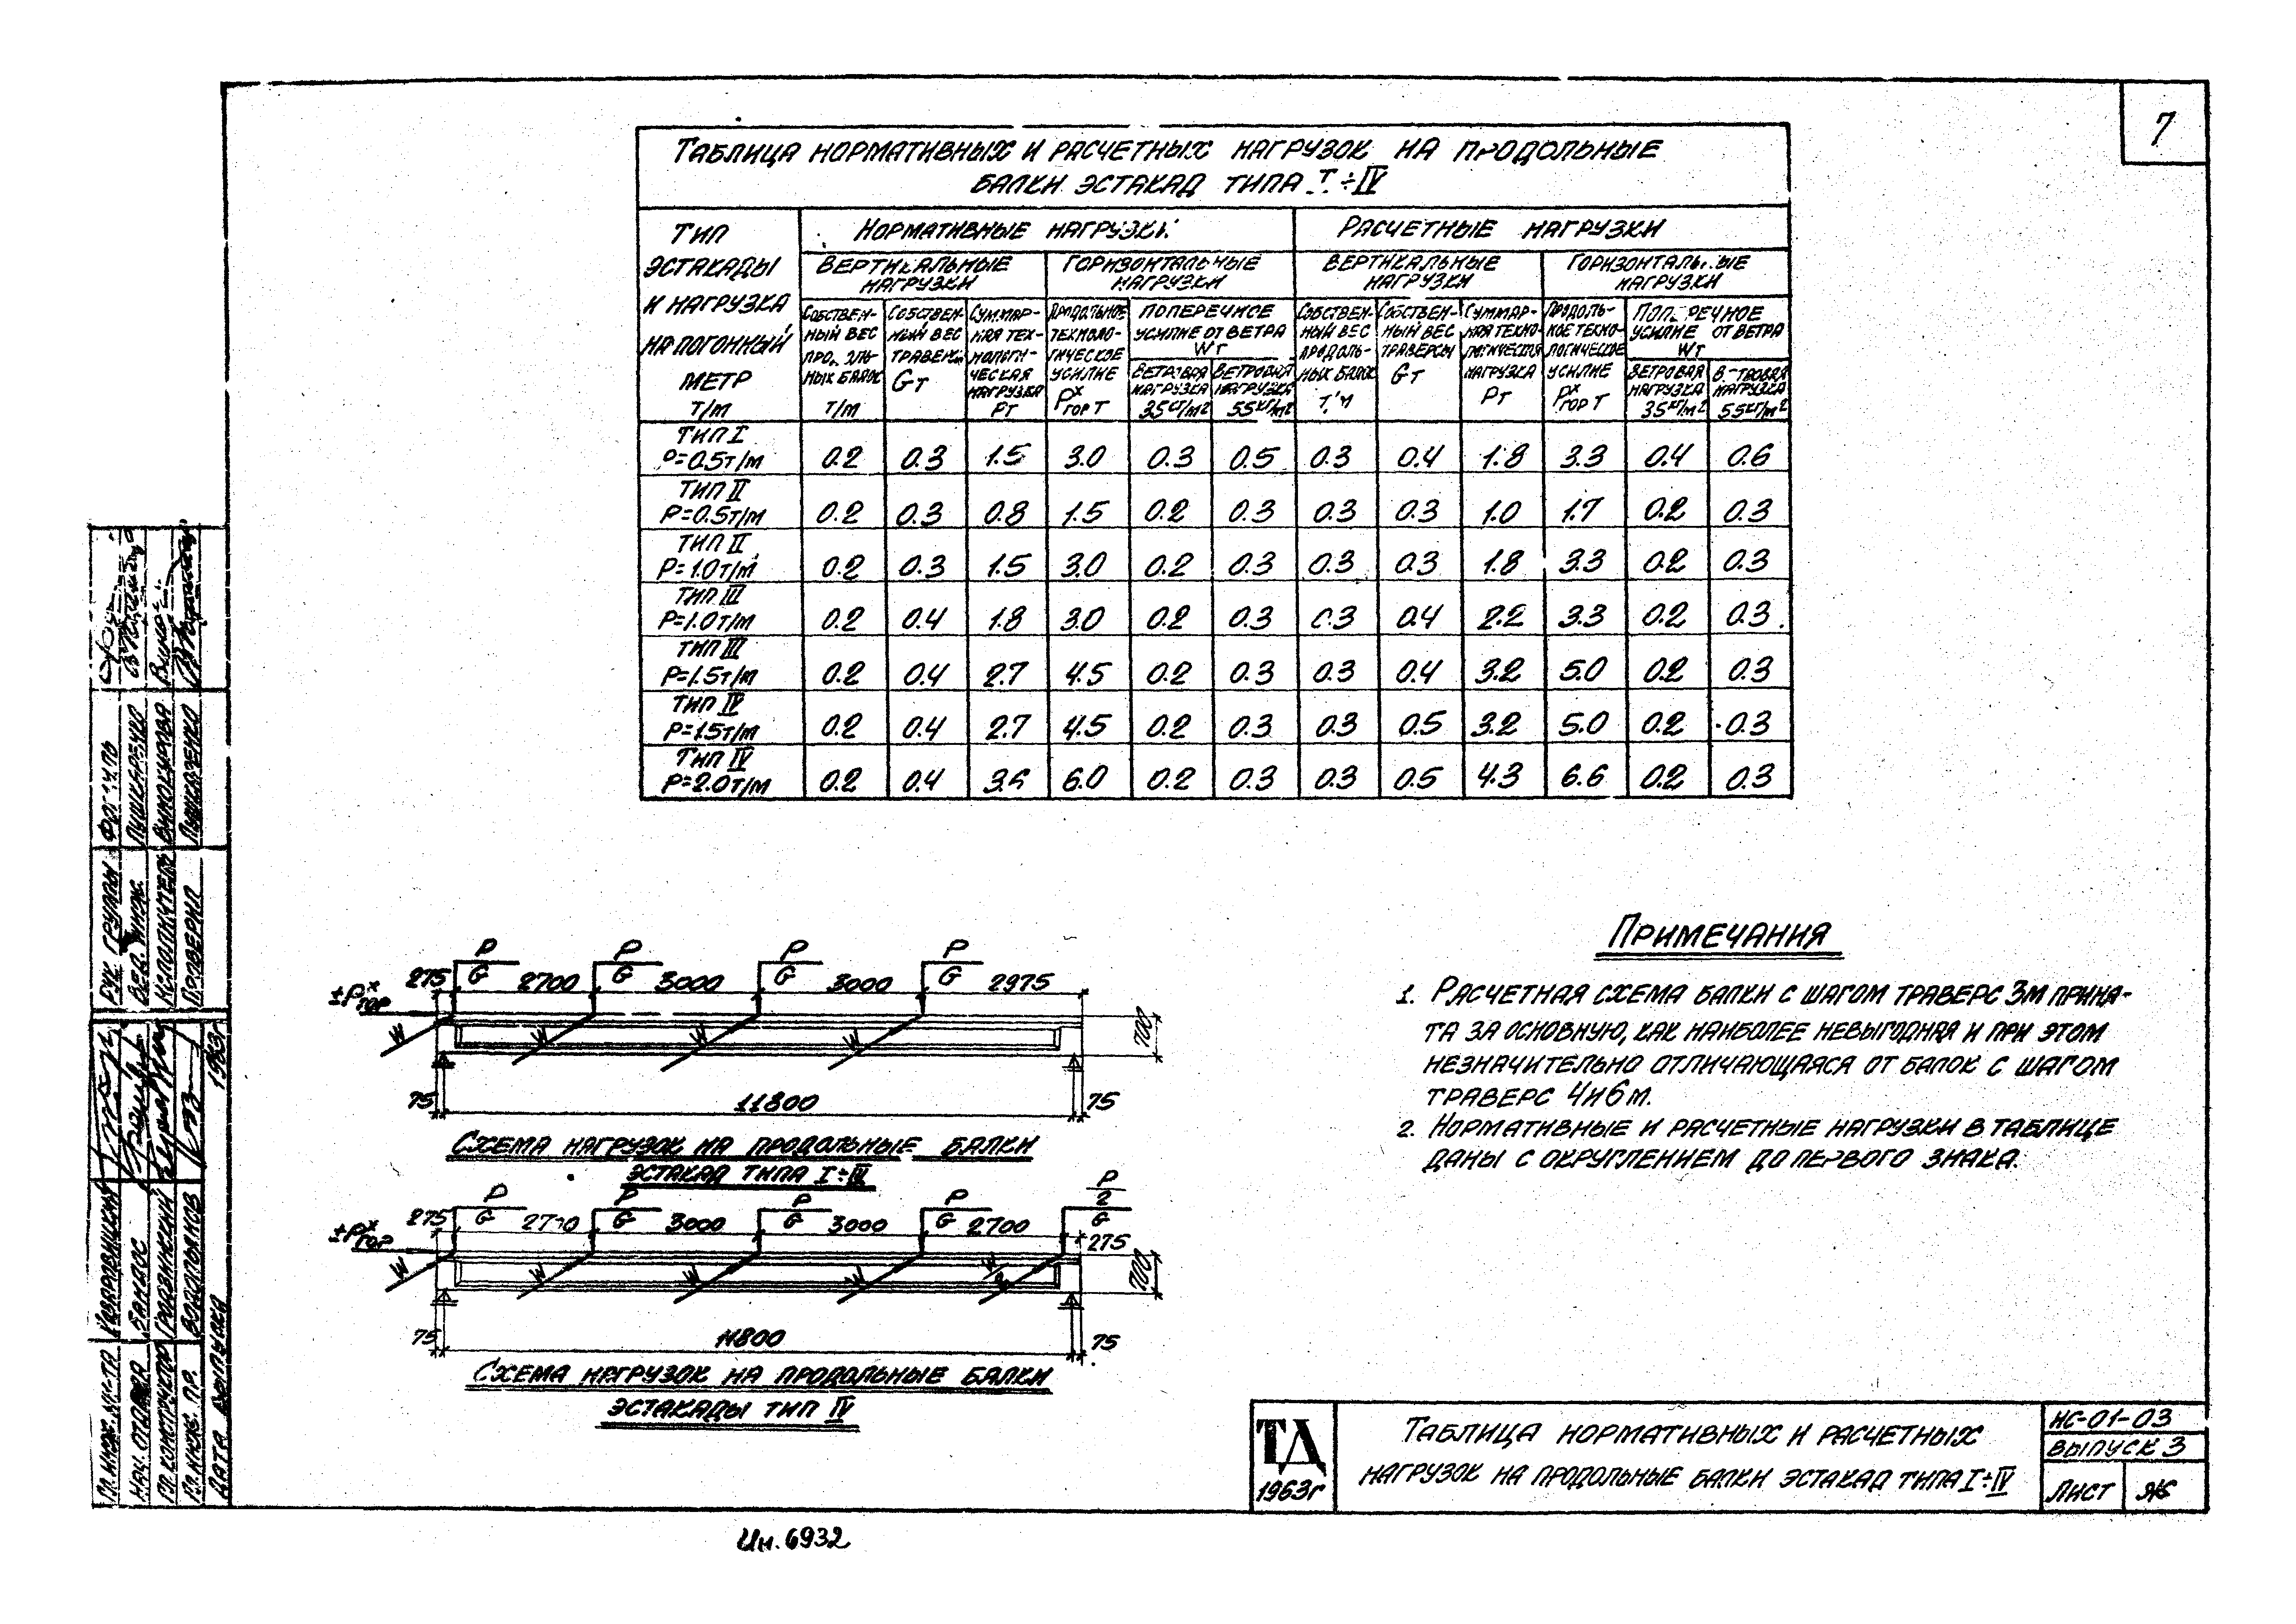 7
Таблица нормативных и расчетных нагрузок на продольные
балки эстакад типа I÷IV
Тип эстакады и нагрузка на погонный метр т/м
Нормативные нагрузки
Расчетные нагрузки
Вертикальные нагрузки
Горизонтальные нагрузки
Вертикальные нагрузки
Горизонтальные нагрузки
Собственный вес продольных балок т/м
Собственный вес траверсы Gт
Суммарная технологическая нагрузка Pт
Продольное технологическое усилие Pˣгор т
Поперечное усилие от ветра Wт
Ветровая нагрузка 35кг/м²
Ветровая нагрузка 55кг/м²
Собственный вес продольных балок т/м
Собственный вес траверсы Gт
Суммарная технологическая нагрузка Pт
Продольное технологическое усилие Pˣгор т
Поперечное усилие от ветра Wт
Ветровая нагрузка 35кг/м²
Ветровая нагрузка 55кг/м²
Тип I P=0.5т/м 0.2 0.3 1.5 3.0 0.3 0.5 0.3 0.4 1.8 3.3 0.4 0.6
Тип II P=0.5т/м 0.2 0.3 0.8 1.5 0.2 0.3 0.3 0.3 1.0 1.7 0.2 0.3
Тип II P=1.0т/м 0.2 0.3 1.5 3.0 0.2 0.3 0.3 0.3 1.8 3.3 0.2 0.3
Тип III P=1.0т/м 0.2 0.4 1.8 3.0 0.2 0.3 0.3 0.4 2.2 3.3 0.2 0.3
Тип III P=1.5т/м 0.2 0.4 2.7 4.5 0.2 0.3 0.3 0.4 3.2 5.0 0.2 0.3
Тип IV P=1.5т/м 0.2 0.4 2.7 4.5 0.2 0.3 0.3 0.5 3.2 5.0 0.2 0.3
Тип IV P=2.0т/м 0.2 0.4 3.6 6.0 0.2 0.3 0.3 0.5 4.3 6.6 0.2 0.3
P P P P
275 G 2700 G 3000 G 3000 G 2975
±Pˣгор
W W W
700
75 11800 75
Схема нагрузок на продольные балки
эстакад типа I÷III
P P P P P/2
275 G 2700 G 3000 G 3000 G 2700 G
275
±Pˣгор
W W W W W/2
700
75 11800 75
Схема нагрузок на продольные балки
эстакады тип IV
Примечания
1. Расчетная схема балки с шагом траверс 3м приня-
та за основную, как наиболее невыгодная и при этом
незначительно отличающаяся от балок с шагом
траверс 4и6м.
2. Нормативные и расчетные нагрузки в таблице
даны с округлением до первого знака.
ТД
1963г
Таблица нормативных и расчетных
нагрузок на продольные балки эстакад типа I÷IV
ИС-01-03
Выпуск 3
Лист Ж
Рук. группы
Вед. инж.
Исполнитель Винокурова
Проверил
Гл. инж. ин-та
Нач. отдела
Гл. конструктор
Гл. инж. пр.
Дата выпуска 1963г
Ин.6932